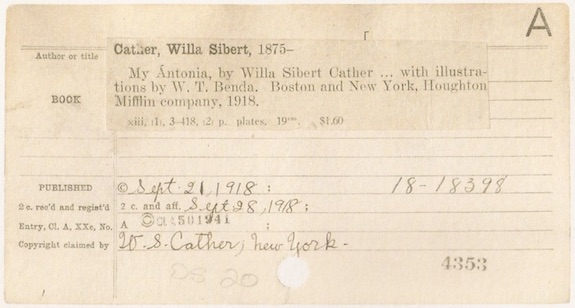 A
Author or title
BOOK
Cather, Willa Sibert, 1875–
My Ántonia, by Willa Sibert Cather ... with illustra-
tions by W. T. Benda. Boston and New York, Houghton
Mifflin company, 1918.
xiii, (1), 3–418, (2) p. plates. 19ᶜᵐ. $1.60
PUBLISHED © Sept. 21, 1918 : 18-18398
2 c. rec'd and regist'd 2 c. and aff. Sept 28, 1918 ;
Entry, Cl. A, XXc, No. A © Cl A 501941 ;
Copyright claimed by W. S. Cather, New York -
4353
DS 20